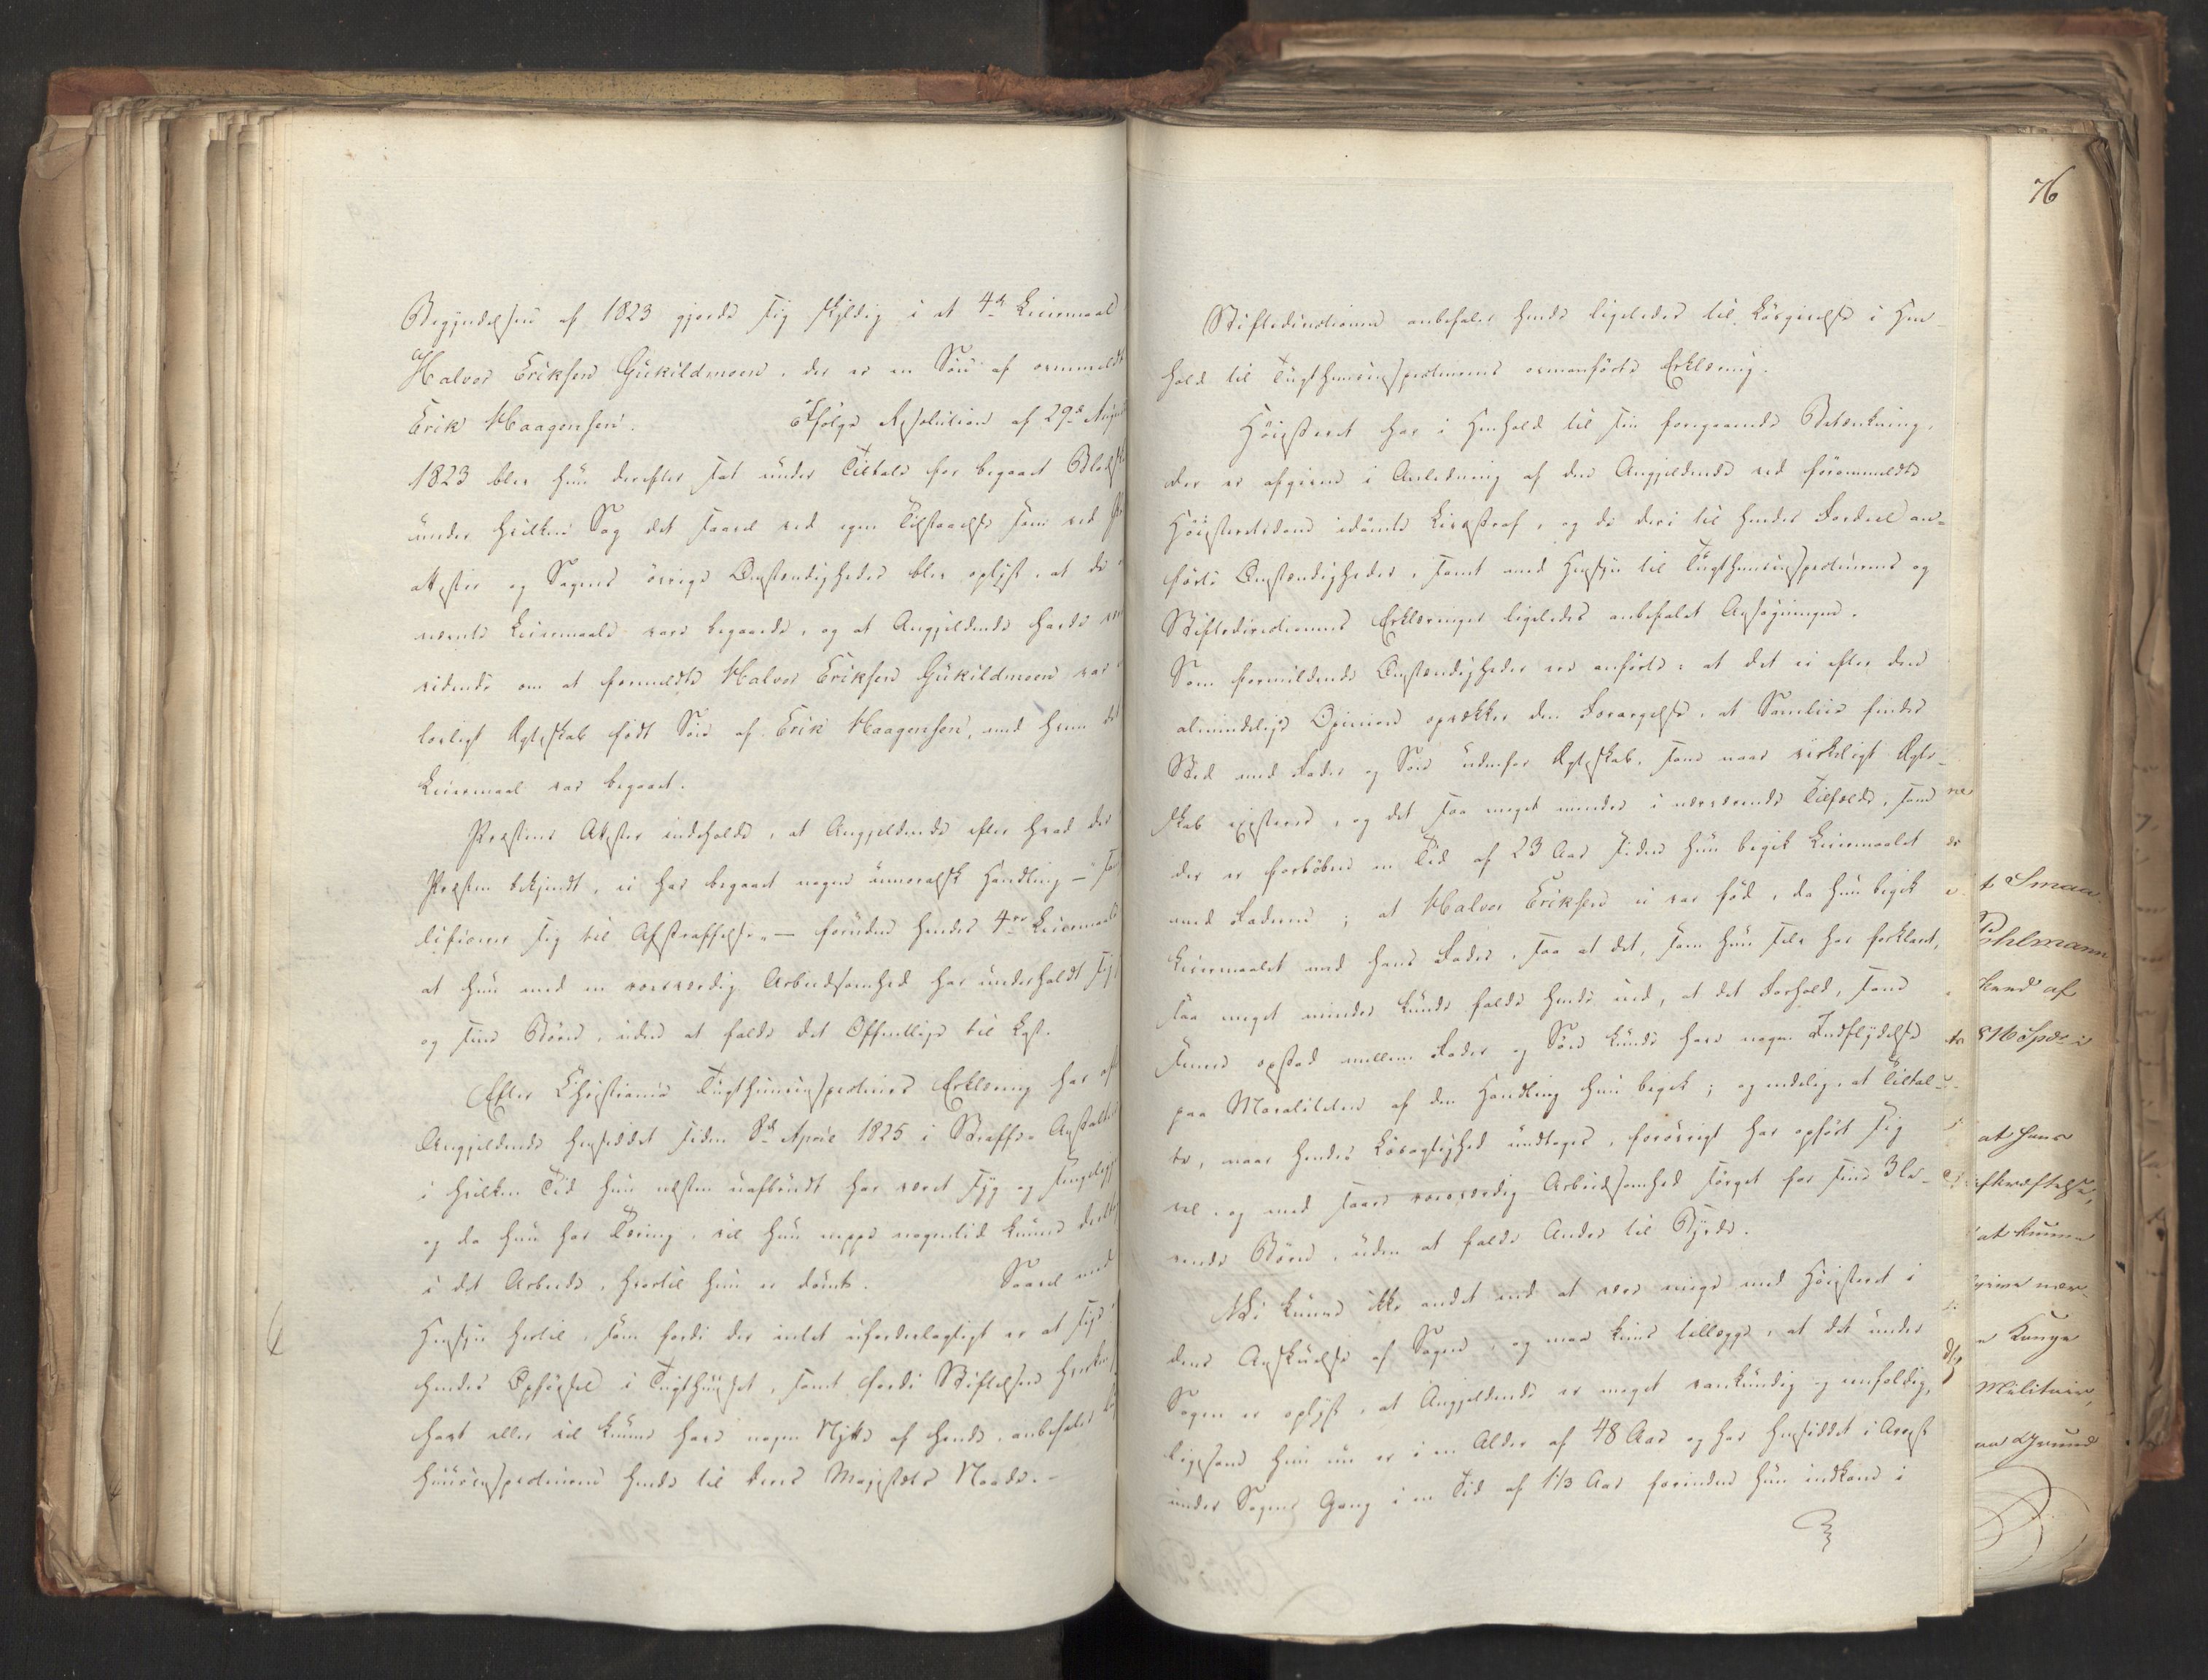 Begyndelsen af 1823 gjorde sig skyldig i et 4de Leiermaal
Halvor Eriksen Gukildmoen, der er en Søn af ovenmeldte
Erik Haagensen. Ifølge Resolution af 29de August
1823 blev hun derefter sat under Tiltale for begaaet Blodskam
under hvilken Sag det saavel ved egen Tilstaaelse som ved
attester og Sagens øvrige Omstændigheder blev oplyst, at de
nævnte Leiermaale vare begaaede, og at Angjeldende havde
vidende om at formeldte Halvor Eriksen Gukildmoen var
lovligt Ægteskab født Søn af Erik Haagensen, med hvem det
Leiermaal var begaaet.
Præstens Attest indeholder, at Angjeldende efter hvad der
Præsten bekjendt, ei har begaaet nogen umoralsk Handling –
lificerer sig til Afstraffelse, – foruden hendes 4re Leiermaale
at hun med en roesværdig Arbeidsomhed har underholdt sig
og sine Børn, uden at falde det Offentlige til Last.
Efter Christiania Tugthuusinspecteurs Erklæring har
Angjeldende hensiddet siden 8de April 1825 i Straffe-Anstalten
i hvilken Tid hun næsten uafbrudt har været syg og sengeliggende
og da hun har Tæring, vil hun neppe nogentid kunne deeltage
i det Arbeide, hvortil hun er dømt. Saavel med
Hensyn hertil, som fordi der intet ufordeelagtigt er at sige
hendes Opførsel i Tugthuuset, samt fordi Stiftelsen hverken
havt eller vil kunne have nogen Nytte af hende, anbefaler
huusinspecteuren hende til Deres Majestæts Naade.–
Stiftsdirectionen anbefaler hende ligeledes til Løsgivelse i Hen-
hold til Tugthuusinspecteurens ovenanførte Erklæring.
Høiesteret har i Henhold til sin foregaaende Betænkning,
der er afgiven i Anledning af den Angjeldende ved forommeldte
Høiesteretsdom idømte Livsstraf, og de deri til hendes Fordeel an-
førte Omstændigheder, samt med Hensyn til Tugthuusinspecteurens og
Stiftsdirectionens Erklæringer ligeledes anbefalet Ansøgningen.
Som formildende Omstændigheder ere anførte: at det ei efter den
almindelige Opinion opvækker den Forargelse, at Samleie finder
Sted med Fader og Søn udenfor Ægteskab, som naar virkeligt Ægte-
skab existerer, og det saa meget mindre i nærværende Tilfælde, som
der er forløben en Tid af 23 Aar siden hun begik Leiermaalet
med Faderen; at Halvor Eriksen ei var fød, da hun begik
Leiermaalet med hans Fader, saa at det, som hun selv har forklaret,
saa meget mindre kunde falde hende ind, at det Forhold, som
senere opstod mellem Fader og Søn kunde have nogen Indflydelse
paa Moraliteten af den Handling hun begik; og endelig, at Tiltal-
te, naar hendes Løsagtighed undtages, forøvrigt har opført sig
vel, og med saare roesværdig Arbeidsomhed sørget for sine 3 le-
vende Børn, uden at falde Andre til Byrde.
Vi kunne ikke andet end at være enige med Høiesteret i
dens Anskuelse af Sagen, og maa kuns tillægge, at det under
Sagen er oplyst, at Angjeldende er meget vankundig og eenfoldig,
ligesom hun nu er i en Alder af 48 Aar og har hensiddet i Arrest
under Sagens Gang i en Tid af 1 1/3 Aar forinden hun indkom i
76
t Smaa
Pohlmann
816 Spd. i
at hans
at kunne
Militair,